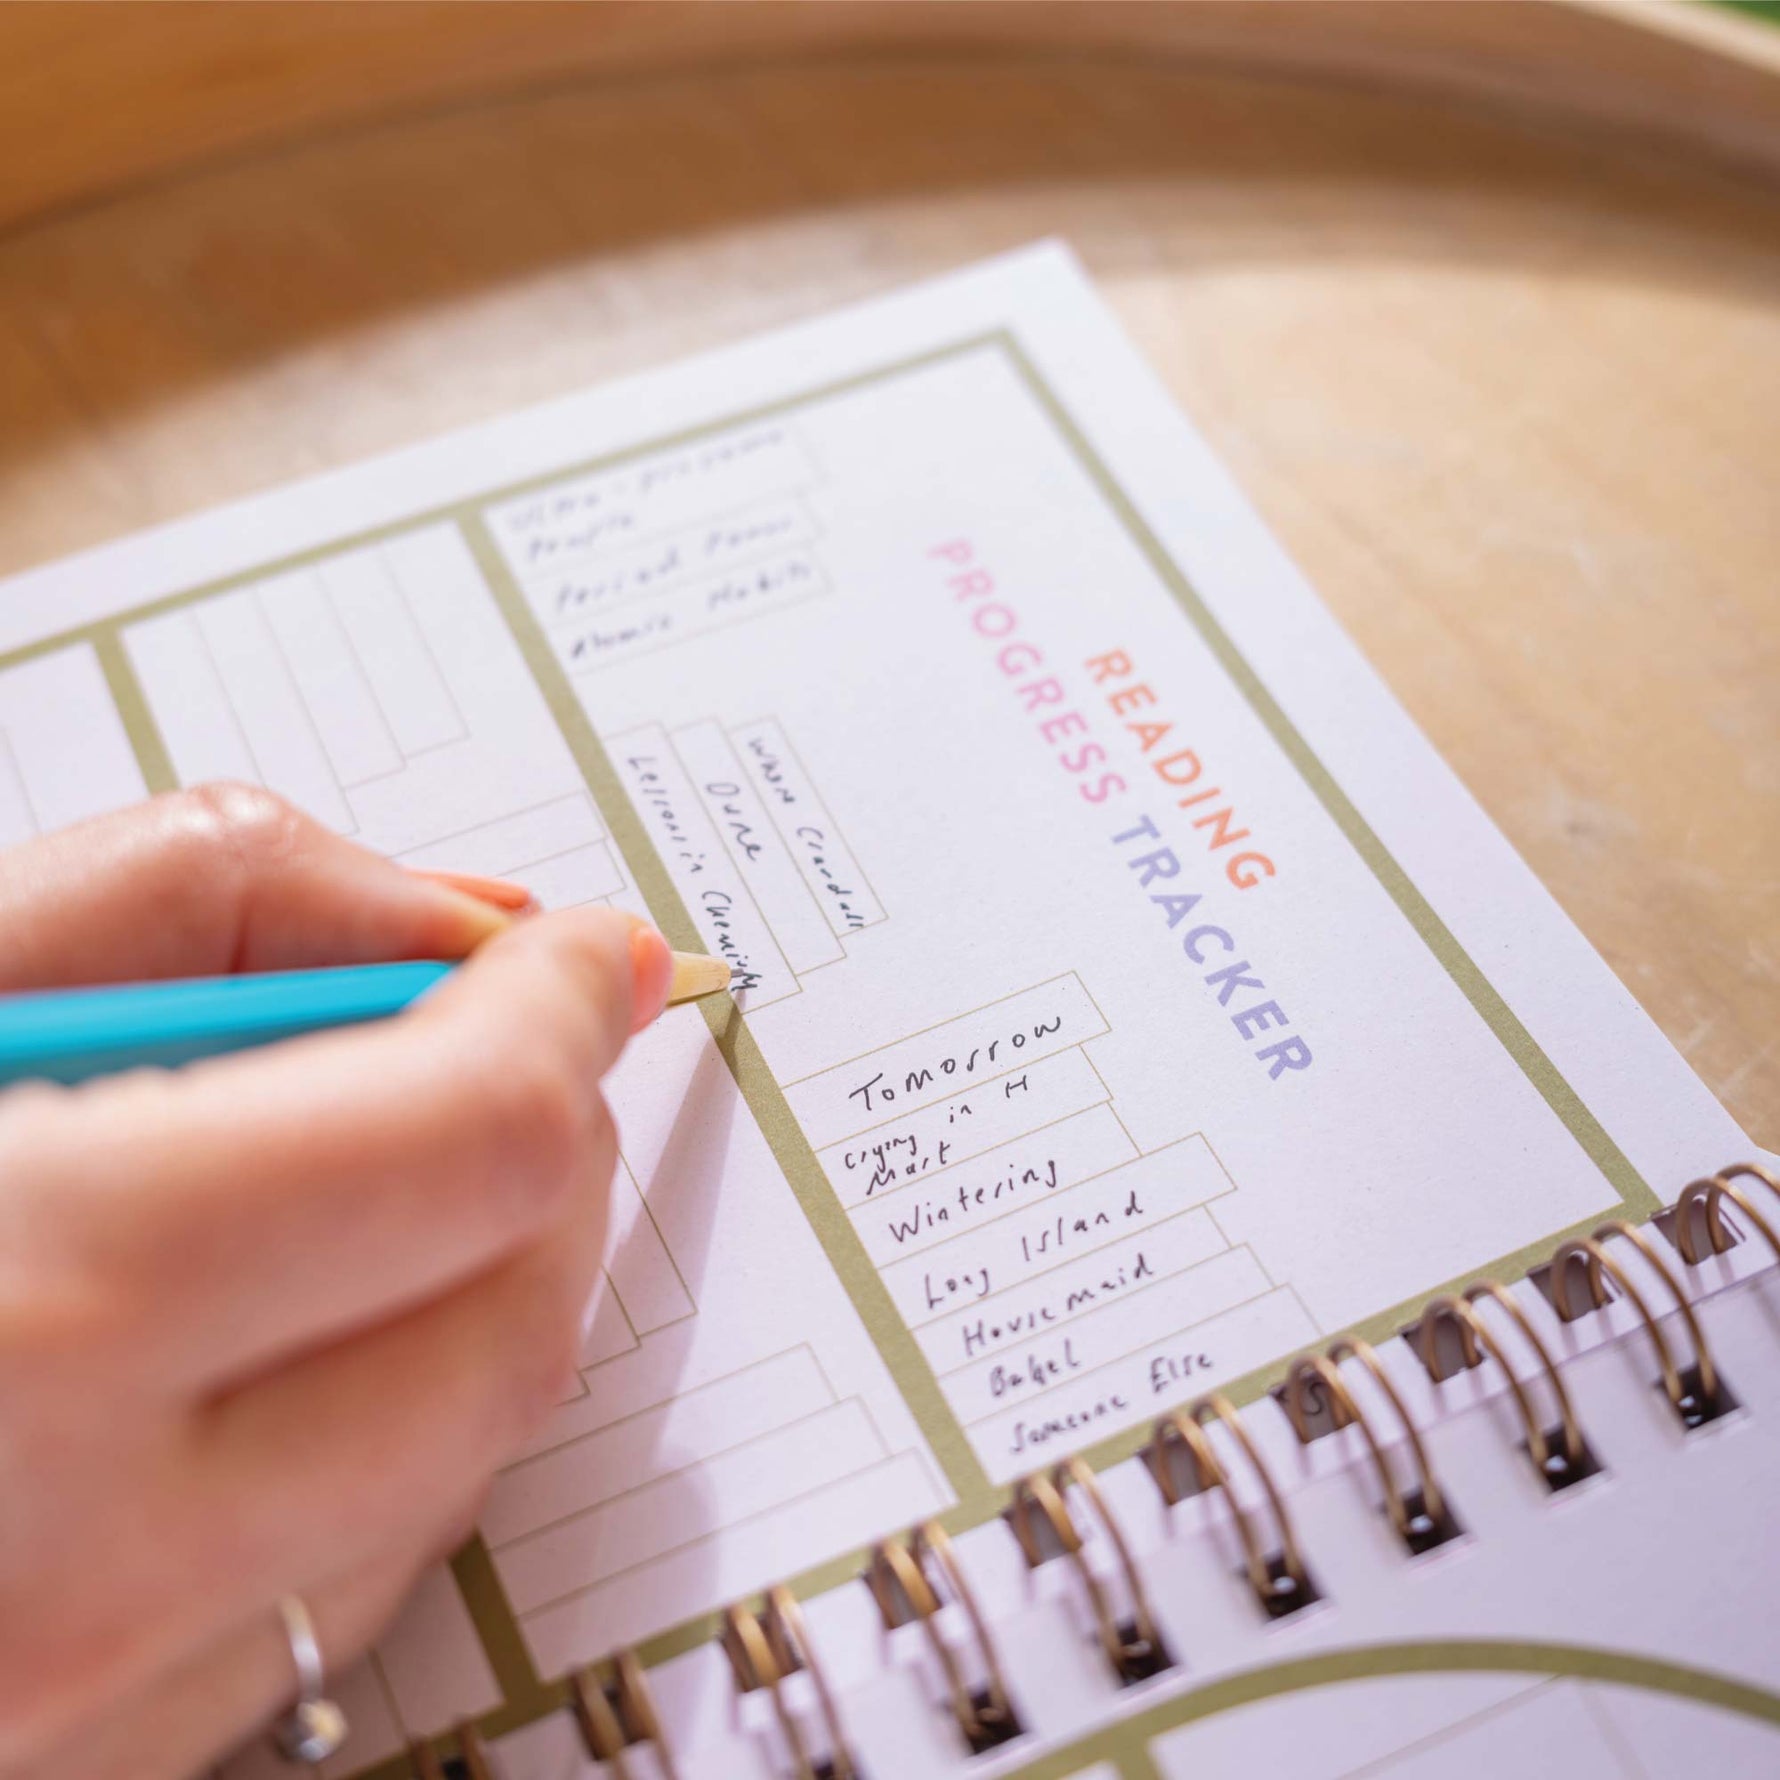 READING
PROGRESS TRACKER
Ultra-processed
People
Period Power
Atomic Habits
Lessons in Chemistry
Dune
Wynn Crandall
Tomorrow
Crying in H
Mart
Wintering
Long Island
Housemaid
Babel
Someone Else